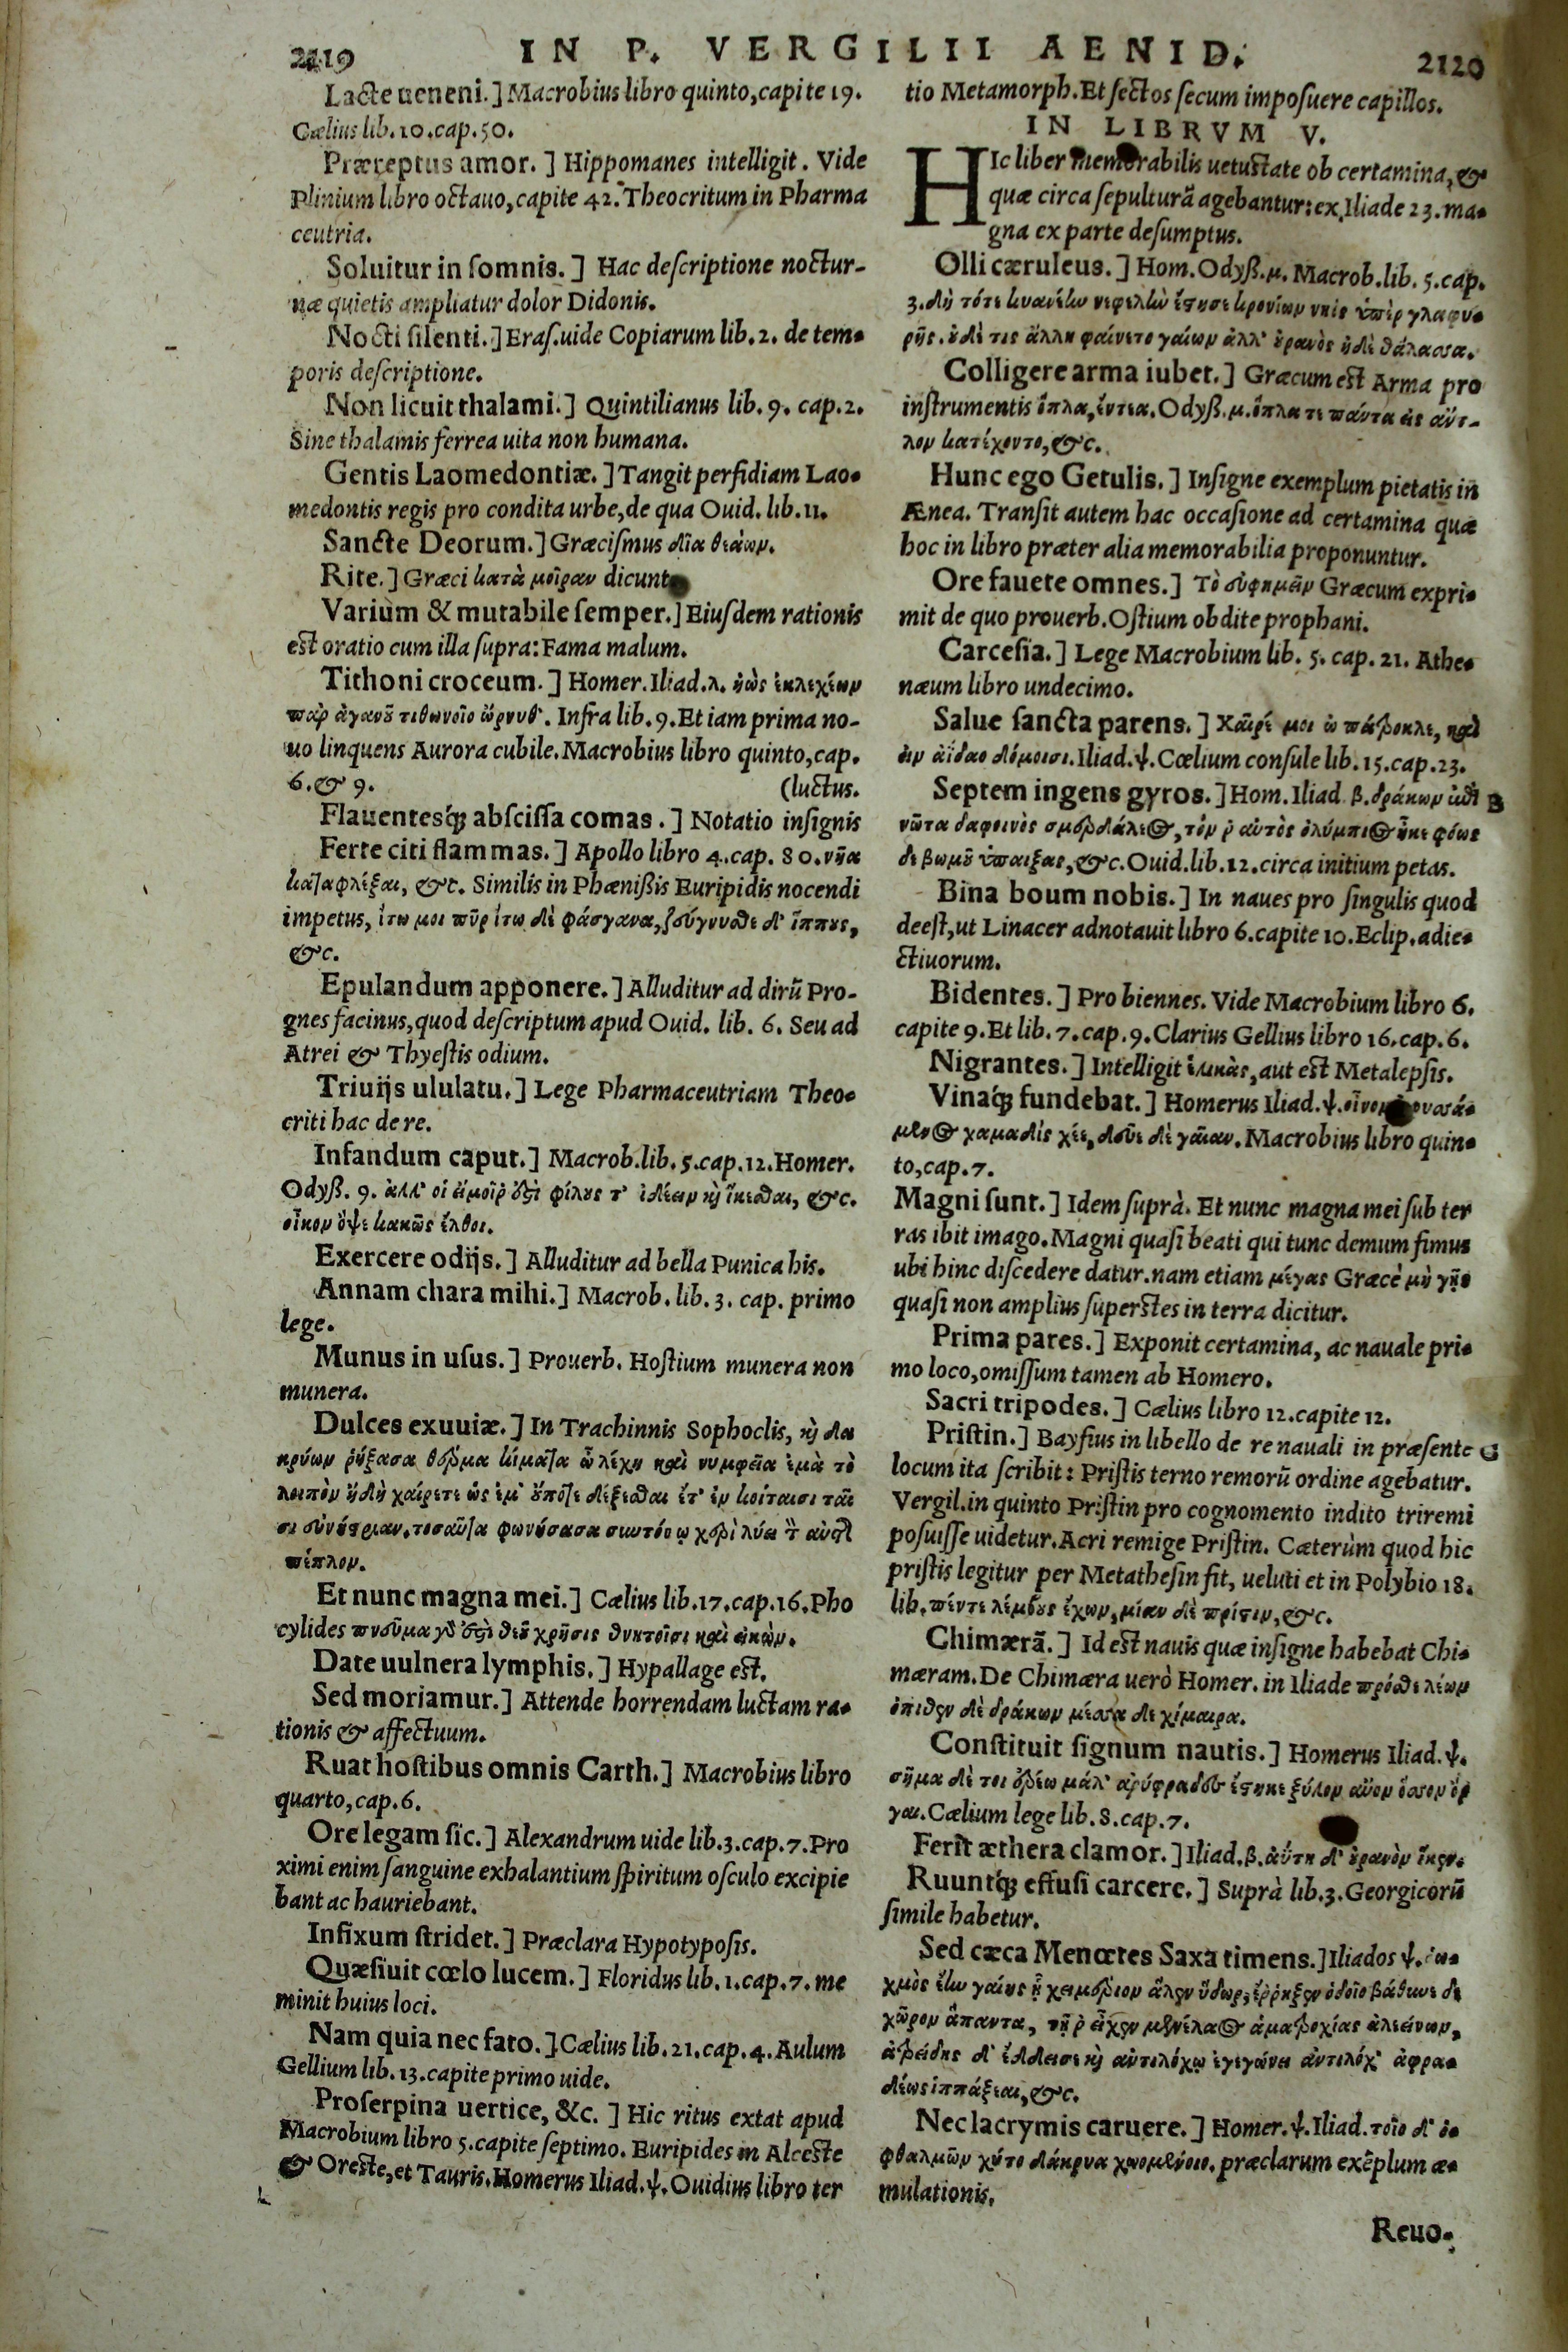 2119 IN P. VERGILII AENID. 2120
Lacte ueneni.] Macrobius libro quinto, capite 19.
Cælius lib. 10. cap. 50.
Præreptus amor.] Hippomanes intelligit. Vide
Plinium libro octauo, capite 42. Theocritum in Pharma
ceutria.
Soluitur in somnis.] Hac descriptione noctur-
næ quietis ampliatur dolor Didonis.
Nocti silenti.] Eras. uide Copiarum lib. 2. de tem-
poris descriptione.
Non licuit thalami.] Quintilianus lib. 9. cap. 2.
Sine thalamis ferrea uita non humana.
Gentis Laomedontiæ.] Tangit perfidiam Lao-
medontis regis pro condita urbe, de qua Ouid. lib. 11.
Sancte Deorum.] Græcismus δῖα θεάων.
Rite.] Græci κατὰ μοῖραν dicunt
Varium & mutabile semper.] Eiusdem rationis
est oratio cum illa supra: Fama malum.
Tithoni croceum.] Homer. Iliad. λ. ἠὼς ἐκλεχέων
παρ ἀγαυοῦ τιθωνοῖο ὤρνυθ'. Infra lib. 9. Et iam prima no-
uo linquens Aurora cubile. Macrobius libro quinto, cap.
6. & 9. (luctus.
Flauentesq́; abscissa comas.] Notatio insignis
Ferte citi flammas.] Apollo libro 4. cap. 80. νῆα
καταφλέξαι, &c. Similis in Phænissis Euripidis nocendi
impetus, ἴτω μοι πῦρ ἴτω δὲ φάσγανα, ζεύγνυσθε δ' ἵππους,
&c.
Epulandum apponere.] Alluditur ad dirũ Pro-
gnes facinus, quod descriptum apud Ouid. lib. 6. Seu ad
Atrei & Thyestis odium.
Triuijs ululatu.] Lege Pharmaceutriam Theo-
criti hac de re.
Infandum caput.] Macrob. lib. 5. cap. 12. Homer.
Odyß. 9. ἀλλ' οἱ εἰ μοῖρ ἐστὶ φίλους τ' ἰδέειν καὶ ἱκέσθαι, &c.
οἶκον ὀψὲ κακῶς ἔλθοι.
Exercere odijs.] Alluditur ad bella Punica his.
Annam chara mihi.] Macrob. lib. 3. cap. primo
lege.
Munus in usus.] Prouerb. Hostium munera non
munera.
Dulces exuuiæ.] In Trachinnis Sophoclis, καὶ δα
κρύων ῥήξασα θερμὰ νάματα ὦ λέχη καὶ νυμφεῖα ἐμὰ τὸ
λοιπὸν ἤδη χαίρετε ὡς ἔμ' οὔποτε δέξεσθαι ἔτ' ἐν κοίταισι ταῖ
σι
πέπλον.
Et nunc magna mei.] Cælius lib. 17. cap. 16. Pho
cylides πνεῦμα γάρ ἐστι θεοῦ χρῆσις θνητοῖσι καὶ εἰκὼν.
Date uulnera lymphis.] Hypallage est.
Sed moriamur.] Attende horrendam luctam ra-
tionis & affectuum.
Ruat hostibus omnis Carth.] Macrobius libro
quarto, cap. 6.
Ore legam sic.] Alexandrum uide lib. 3. cap. 7. Pro
ximi enim sanguine exhalantium spiritum osculo excipie
bant ac hauriebant.
Infixum stridet.] Præclara Hypotyposis.
Quæsiuit cœlo lucem.] Floridus lib. 1. cap. 7. me
minit huius loci.
Nam quia nec fato.] Cælius lib. 21. cap. 4. Aulum
Gellium lib. 13. capite primo uide.
Proserpina uertice, &c.] Hic ritus extat apud
Macrobium libro 5. capite septimo. Euripides in Alceste
& Oreste, et Tauris. Homerus Iliad. ψ. Ouidius libro ter
tio Metamorph. Et sectos secum imposuere capillos.
IN LIBRVM V.
HIc liber memorabilis uetustate ob certamina, &
quæ circa sepulturã agebantur: ex Iliade 23. ma-
gna ex parte desumptus.
Olli cæruleus.] Hom. Odyß. μ. Macrob. lib. 5. cap.
3. δὴ τότε κυανέην νεφέλην ἔστησε κρονίων νηὸς ὑπὲρ γλαφυ-
ρῆς. οὐδέ τις ἄλλη φαίνετο γαίων ἀλλ' οὐρανὸς ἠδὲ θάλασσα.
Colligere arma iubet.] Græcum est Arma pro
instrumentis ὅπλα, ἔντεα. Odyß. μ. ὅπλα τε πάντα εἰς ἄντ-
λον κατέχοντο, &c.
Hunc ego Getulis.] Insigne exemplum pietatis in
Ænea. Transit autem hac occasione ad certamina quæ
hoc in libro præter alia memorabilia proponuntur.
Ore fauete omnes.] Τὸ εὐφημεῖν Græcum expri-
mit de quo prouerb. Ostium obdite prophani.
Carcesia.] Lege Macrobium lib. 5. cap. 21. Athe-
næum libro undecimo.
Salue sancta parens.] Χαῖρέ μοι ὦ πάτροκλε, καὶ
εἰν ἀΐδαο δόμοισι. Iliad. ψ. Cœlium consule lib. 15. cap. 23.
Septem ingens gyros.] Hom. Iliad β. δράκων ἐπὶ B
νῶτα δαφοινὸς σμερδαλέος, τόν ῥ αὐτὸς ὀλύμπιος ἧκε φόως
δε βωμοῦ ὑπαιξας, &c. Ouid. lib. 12. circa initium petas.
Bina boum nobis.] In naues pro singulis quod
deest, ut Linacer adnotauit libro 6. capite 10. Eclip. adie-
ctiuorum.
Bidentes.] Pro biennes. Vide Macrobium libro 6.
capite 9. Et lib. 7. cap. 9. Clarius Gellius libro 16. cap. 6.
Nigrantes.] Intelligit aut est Metalepsis.
Vinaq́; fundebat.] Homerus Iliad. ψ. οἶνον
μενος χαμάδις χέε, δεῦε δὲ γαῖαν. Macrobius libro quin-
to, cap. 7.
Magni sunt.] Idem suprà. Et nunc magna mei sub ter
ras ibit imago. Magni quasi beati qui tunc demum simus
ubi hinc discedere datur. nam etiam μέγας Græcè μὴ γῆς
quasi non amplius superstes in terra dicitur.
Prima pares.] Exponit certamina, ac nauale pri-
mo loco, omissum tamen ab Homero.
Sacri tripodes.] Cælius libro 12. capite 12.
Pristin.] Bayfius in libello de re nauali in præsente C
locum ita scribit: Pristis terno remorũ ordine agebatur.
Vergil. in quinto Pristin pro cognomento indito triremi
posuisse uidetur. Acri remige Pristin. Cæterùm quod hic
pristis legitur per Metathesin fit, ueluti et in Polybio 18.
lib. πέντε λέμβους ἔχων, μίαν δὲ πρίστιν, &c.
Chimærã.] Id est nauis quæ insigne habebat Chi-
mæram. De Chimæra uerò Homer. in Iliade πρόσθε λέων
ὄπιθεν δὲ δράκων μέσση δὲ χίμαιρα.
Constituit signum nautis.] Homerus Iliad. ψ.
σῆμα δέ τοι ἐρέω μάλ' ἀριφραδὲς ἕστηκε ξύλον αὖον ὅσσον ὄρ
γαι. Cælium lege lib. 8. cap. 7.
Ferit æthera clamor.] Iliad. β. ἀϋτὴ δ' οὐρανὸν ἷκεν.
Ruuntq́; effusi carcere.] Suprà lib. 3. Georgicorũ
simile habetur.
Sed cæca Menœtes Saxa timens.] Iliados ψ. ῥω-
χμὸς ἔην γαίης ᾗ χειμέριον ἅλεν ὕδωρ, ἐῤῥηξεν ὁδοῖο βάθυνε δὲ
χῶρον ἅπαντα, τῇ ῥ εἶχεν μενέλαος ἁματροχίας ἀλεείνων,
ἀτρείδης δ' ἔδδεισε καὶ ἀντιλόχῳ ἐγεγώνει ἀντίλοχ' ἀφρα-
δέως ἱππάζεαι, &c.
Nec lacrymis caruere.] Homer. ψ. Iliad. τοῖο δ' ὀ-
φθαλμῶν χύτο δάκρυα χωομένοιο. præclarum exẽplum æ-
mulationis.
Reuo-